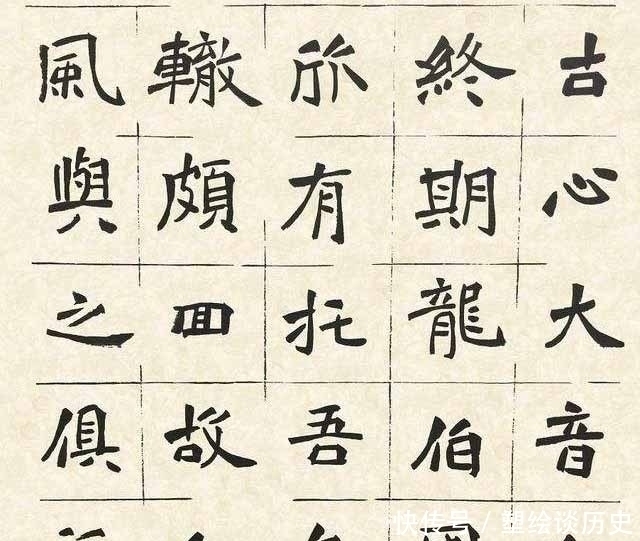 古心大音
終期龍伯
所有托吾
轍頗回故
風與之俱
快传号 / 塑绘谈历史